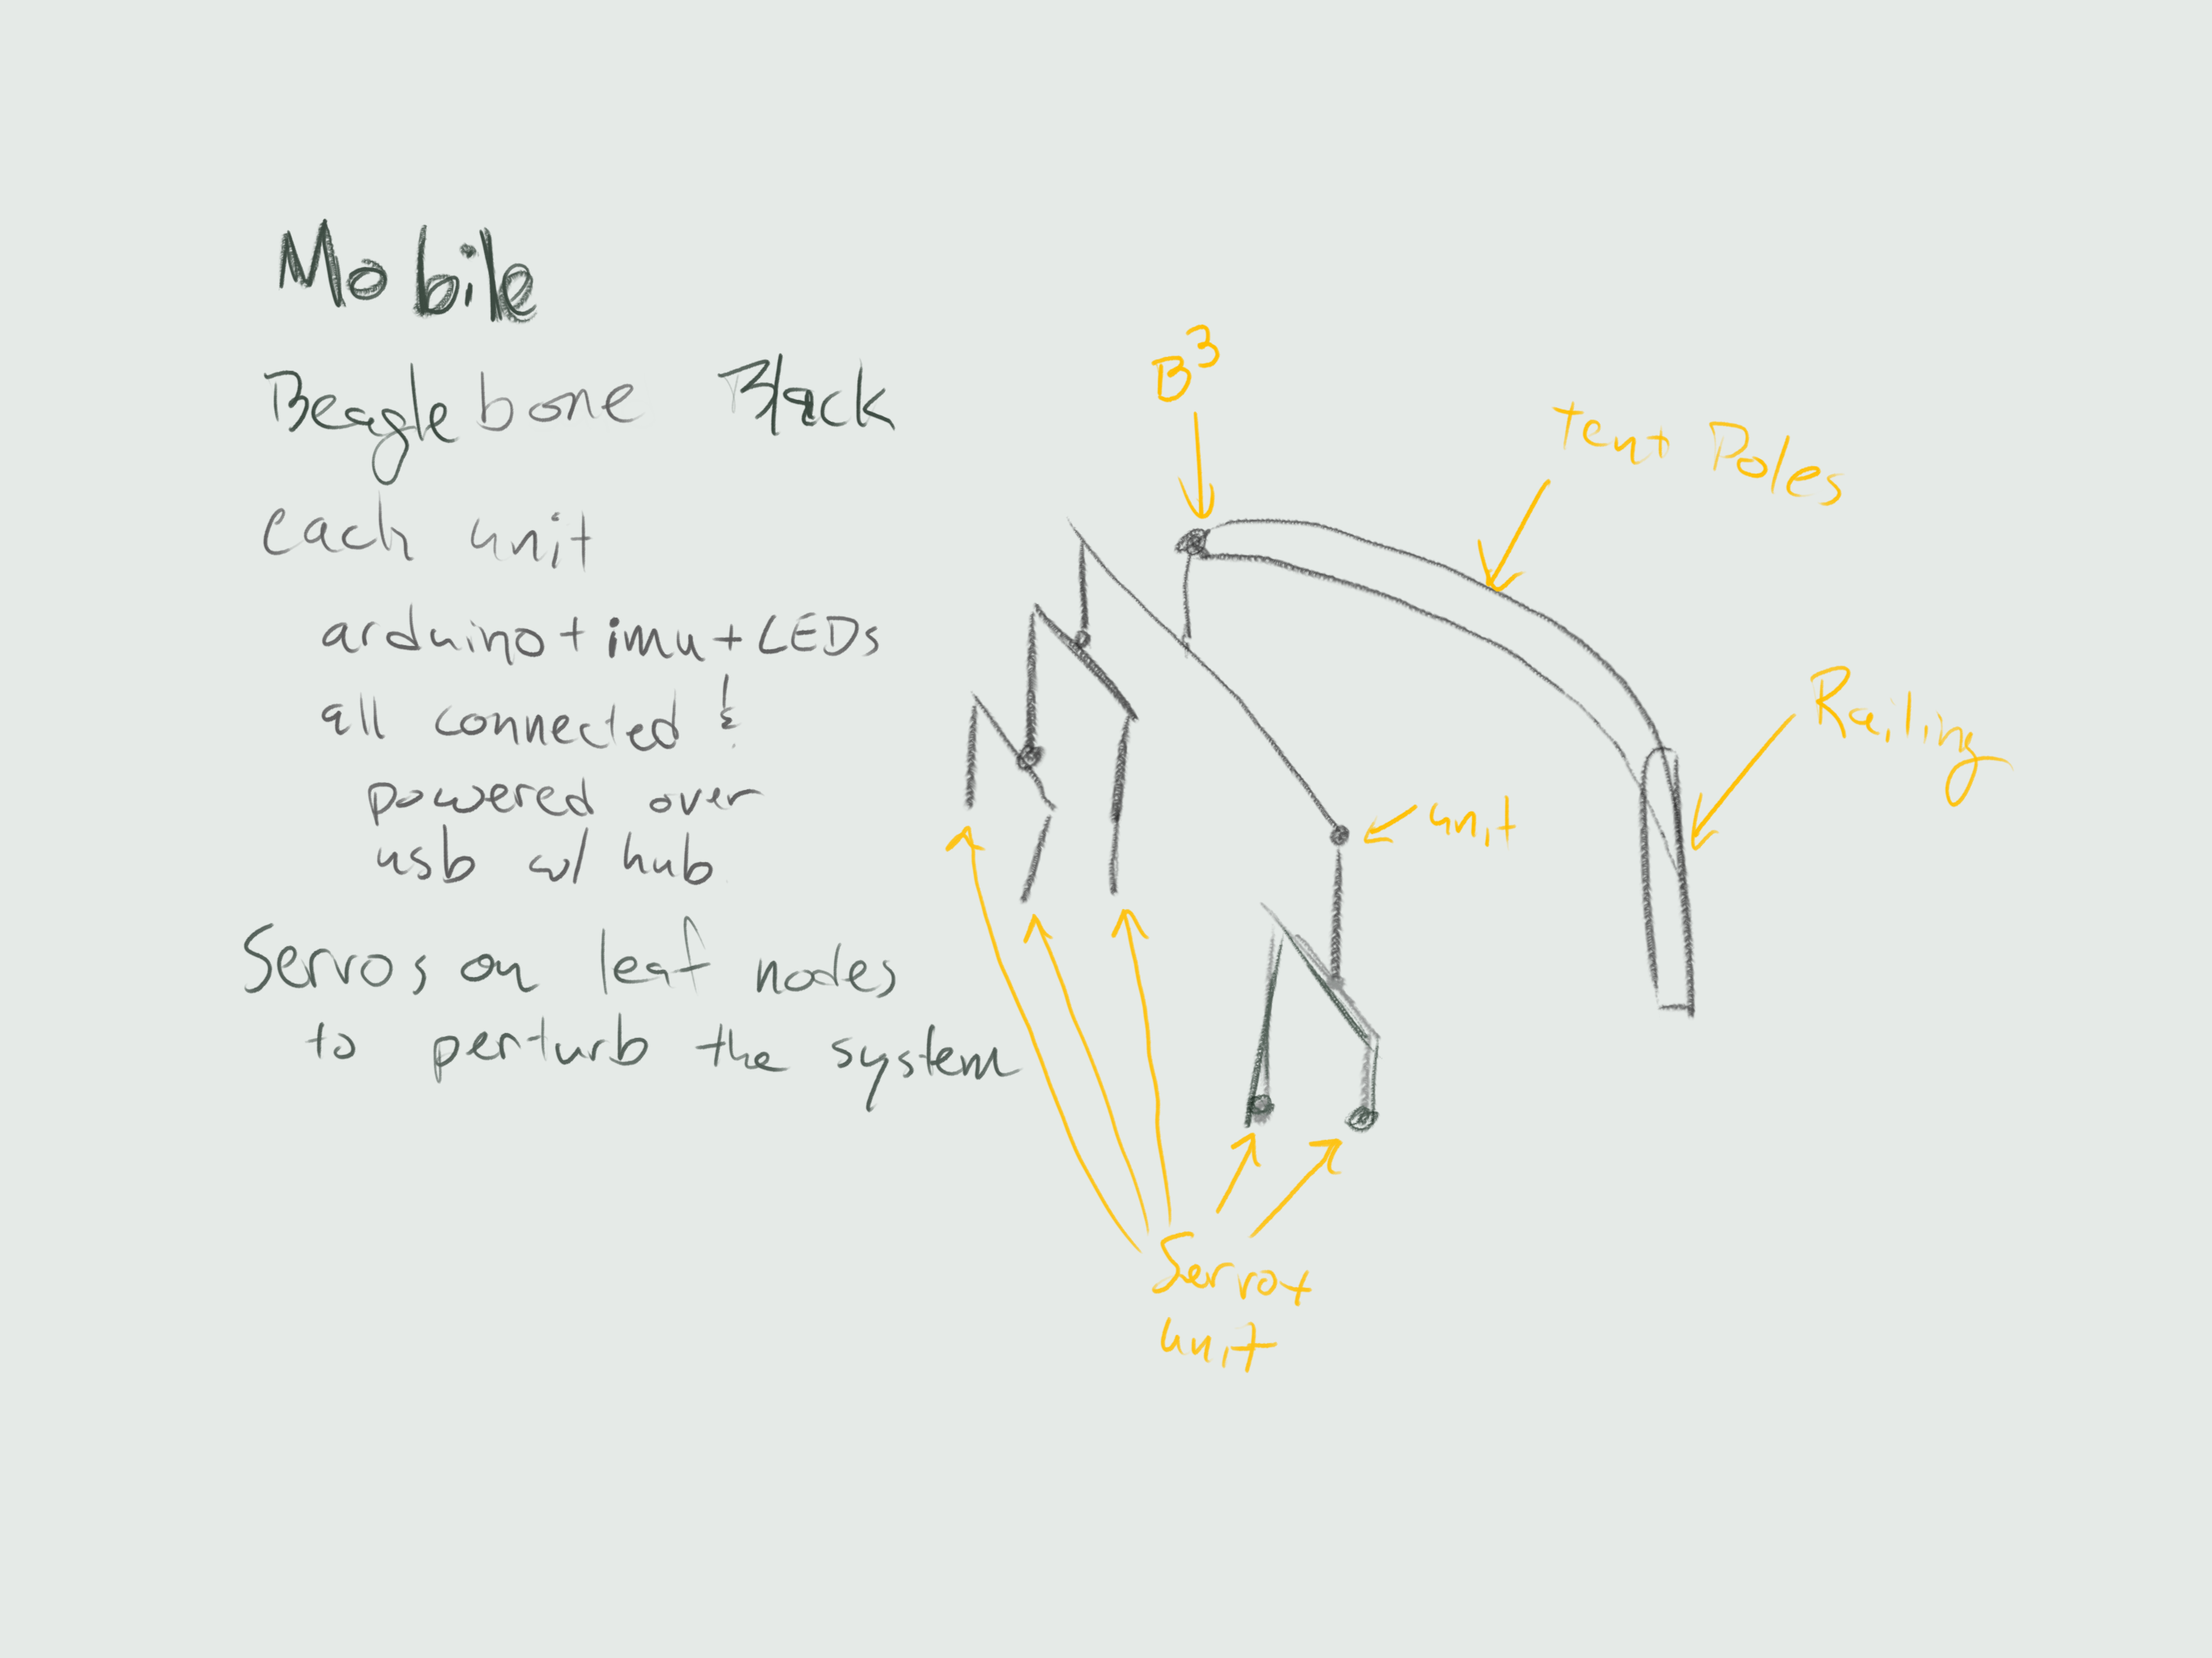 Mobile
Beaglebone Black
each unit
arduino + imu + LEDs
all connected &
powered over
usb w/ hub
Servos on leaf nodes
to perturb the system
B³
tent Poles
Railing
unit
Servo +
unit